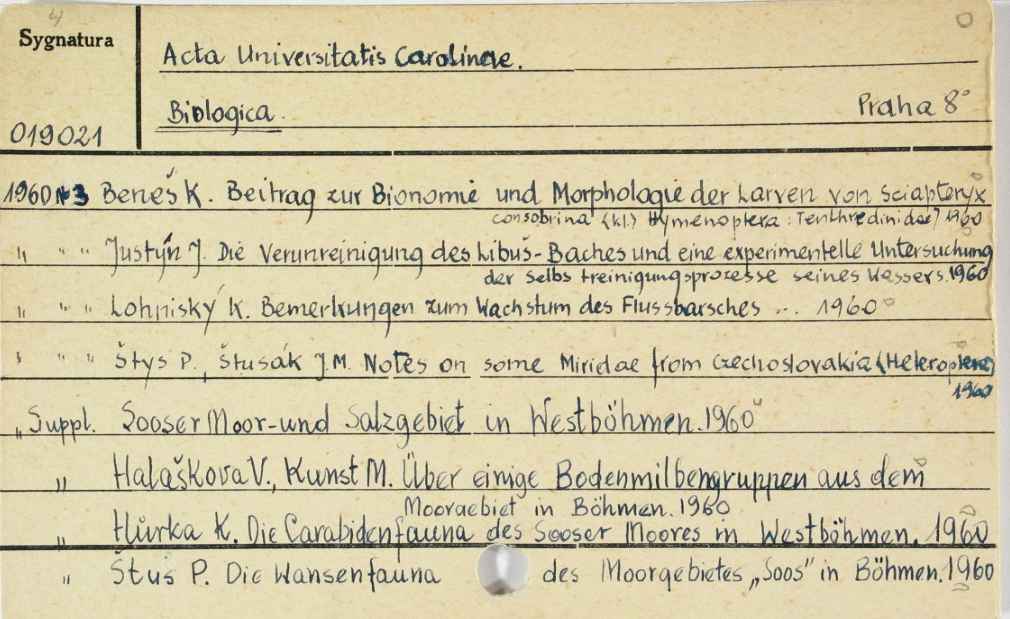 4
Sygnatura
Acta Universitatis Carolinae.
Biologica.
Praha 8°
019021
1960 Nr 3 Beneš K. Beitrag zur Bionomie und Morphologie der Larven von Sciapteryx
consobrina (Kl.) Hymenoptera: Tenthredinidae) 1960
" " " Justýn J. Die Verunreinigung des Libuš-Baches und eine experimentelle Untersuchung
der Selbstreinigungsprozesse seines Wassers. 1960
" " " Lohniský K. Bemerkungen zum Wachstum des Flussbarsches ... 1960
" " " Štys P., Štusák J.M. Notes on some Miridae from Czechoslovakia (Heteroptera)
1960
" Suppl. Sooser Moor-und Salzgebiet in Westböhmen. 1960
" Halaškova V., Kunst M. Über einige Bodenmilbengruppen aus dem
Moorgebiet in Böhmen. 1960
" Hůrka K. Die Carabidenfauna des Sooser Moores in Westböhmen. 1960
" Štus P. Die Wansenfauna des Moorgebietes „Soos" in Böhmen. 1960